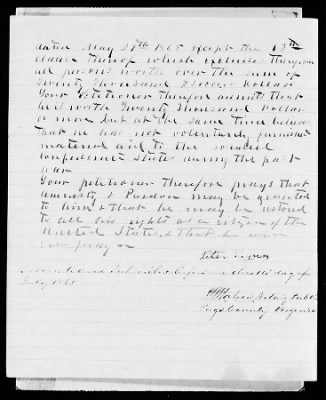 dated May 29th 1865 except the 13th
clause thereof which excludes therefrom
all persons worth over the sum of
Twenty Thousand Dollars
Your Petitioner therefore admits that
he is worth Twenty Thousand Dollars
or more but at the same time believes
that he has not voluntarily furnished
material aid to the
Confederate States during the past
war
Your petitioner therefore prays that
amnesty & Pardon may be granted
to him & that he may be restored
to all his rights as a citizen of the
United States & that he will
ever pray &c
Peter
Sworn to and Subscribed before me this day of
July 1865
Notary Public
County Virginia